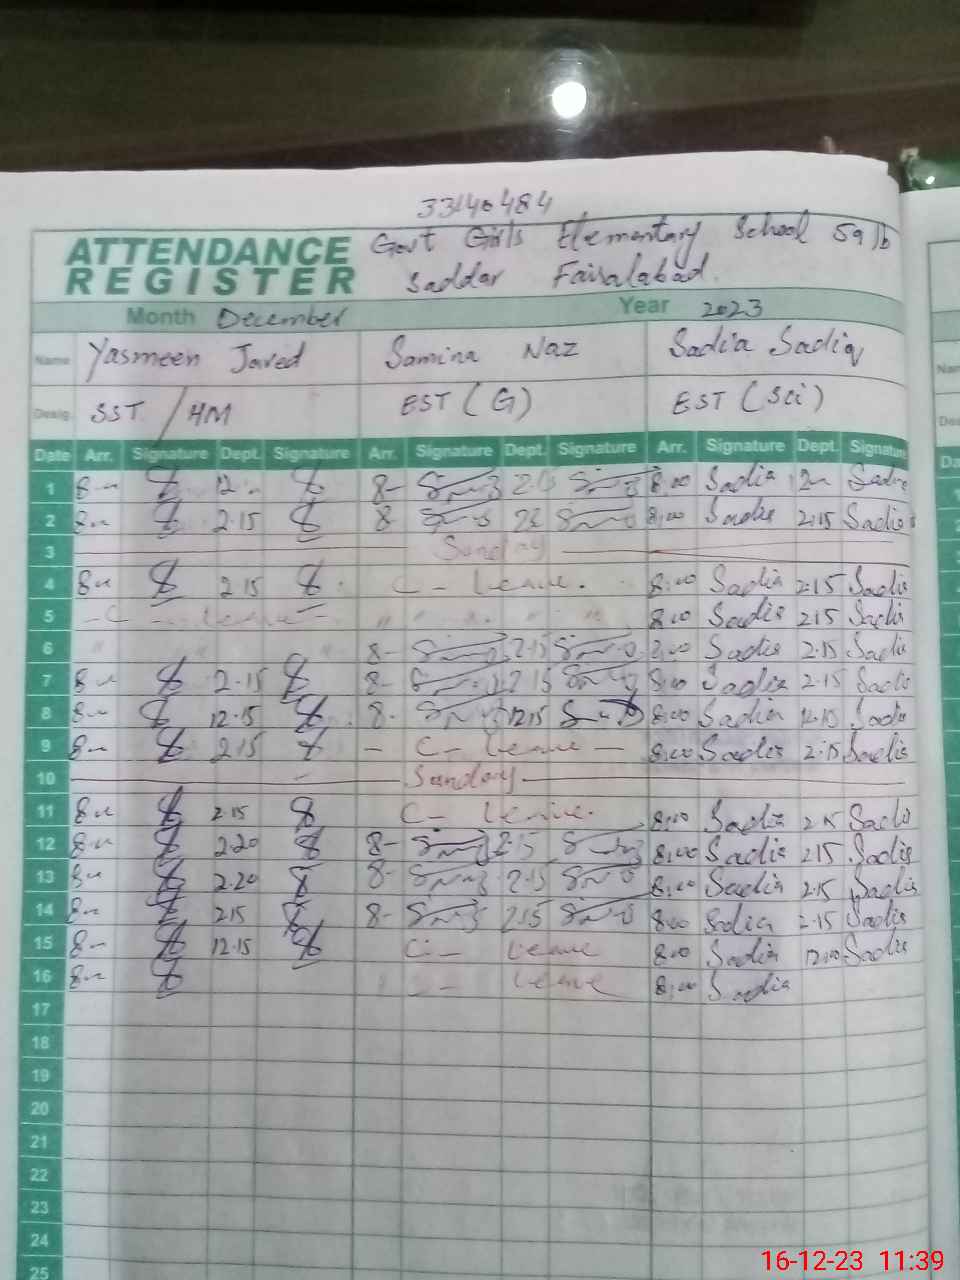 33140484
ATTENDANCE REGISTER
Govt Girls Elementary School 59 Jb
Saddar Faisalabad.
Month December Year 2023
Name Yasmeen Javed Samina Naz Sadia Sadiq
Desig. SST / HM EST (G) EST (Sci)
Date Arr. Signature Dept. Signature Arr. Signature Dept. Signature Arr. Signature Dept. Signature
1 8- 8- 2.15 8:00 Sadia Sadia
2 2.15 8 8:00 Sadia 2:15 Sadia
3 Sunday
4 2.15 C - Leave. 8:00 Sadia 2:15 Sadia
5 - C - Leave - " " " " 8:00 Sadia 2.15 Sadia
6 " " " 8- 2.15 8:00 Sadia 2.15 Sadia
7 2.15 8- 2.15 8:00 Sadia 2.15 Sadia
8 12.15 8- 12.15 8:00 Sadia 12.15 Sadia
9 2.15 - C - Leave - 8:00 Sadia 2.15 Sadia
10 Sunday
11 2.15 C - Leave. 8:00 Sadia 2.15 Sadia
12 2.20 8- 2.15 8:00 Sadia 2.15 Sadia
13 2.20 8- 2.15 8:00 Sadia 2.15 Sadia
14 2.15 8- 2.15 8:00 Sadia 2.15 Sadia
15 8- 12.15 C - Leave 8:00 Sadia 12:00 Sadia
16 C - Leave 8:00 Sadia
17
18
19
20
21
22
23
24
25
16-12-23 11:39